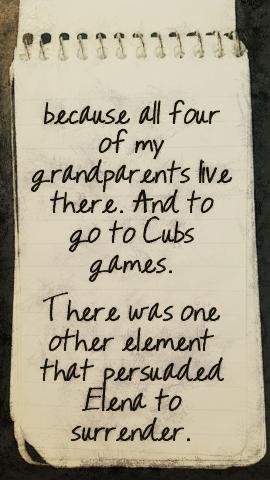 because all four
of my
grandparents live
there. And to
go to Cubs
games.
There was one
other element
that persuaded
Elena to
surrender.